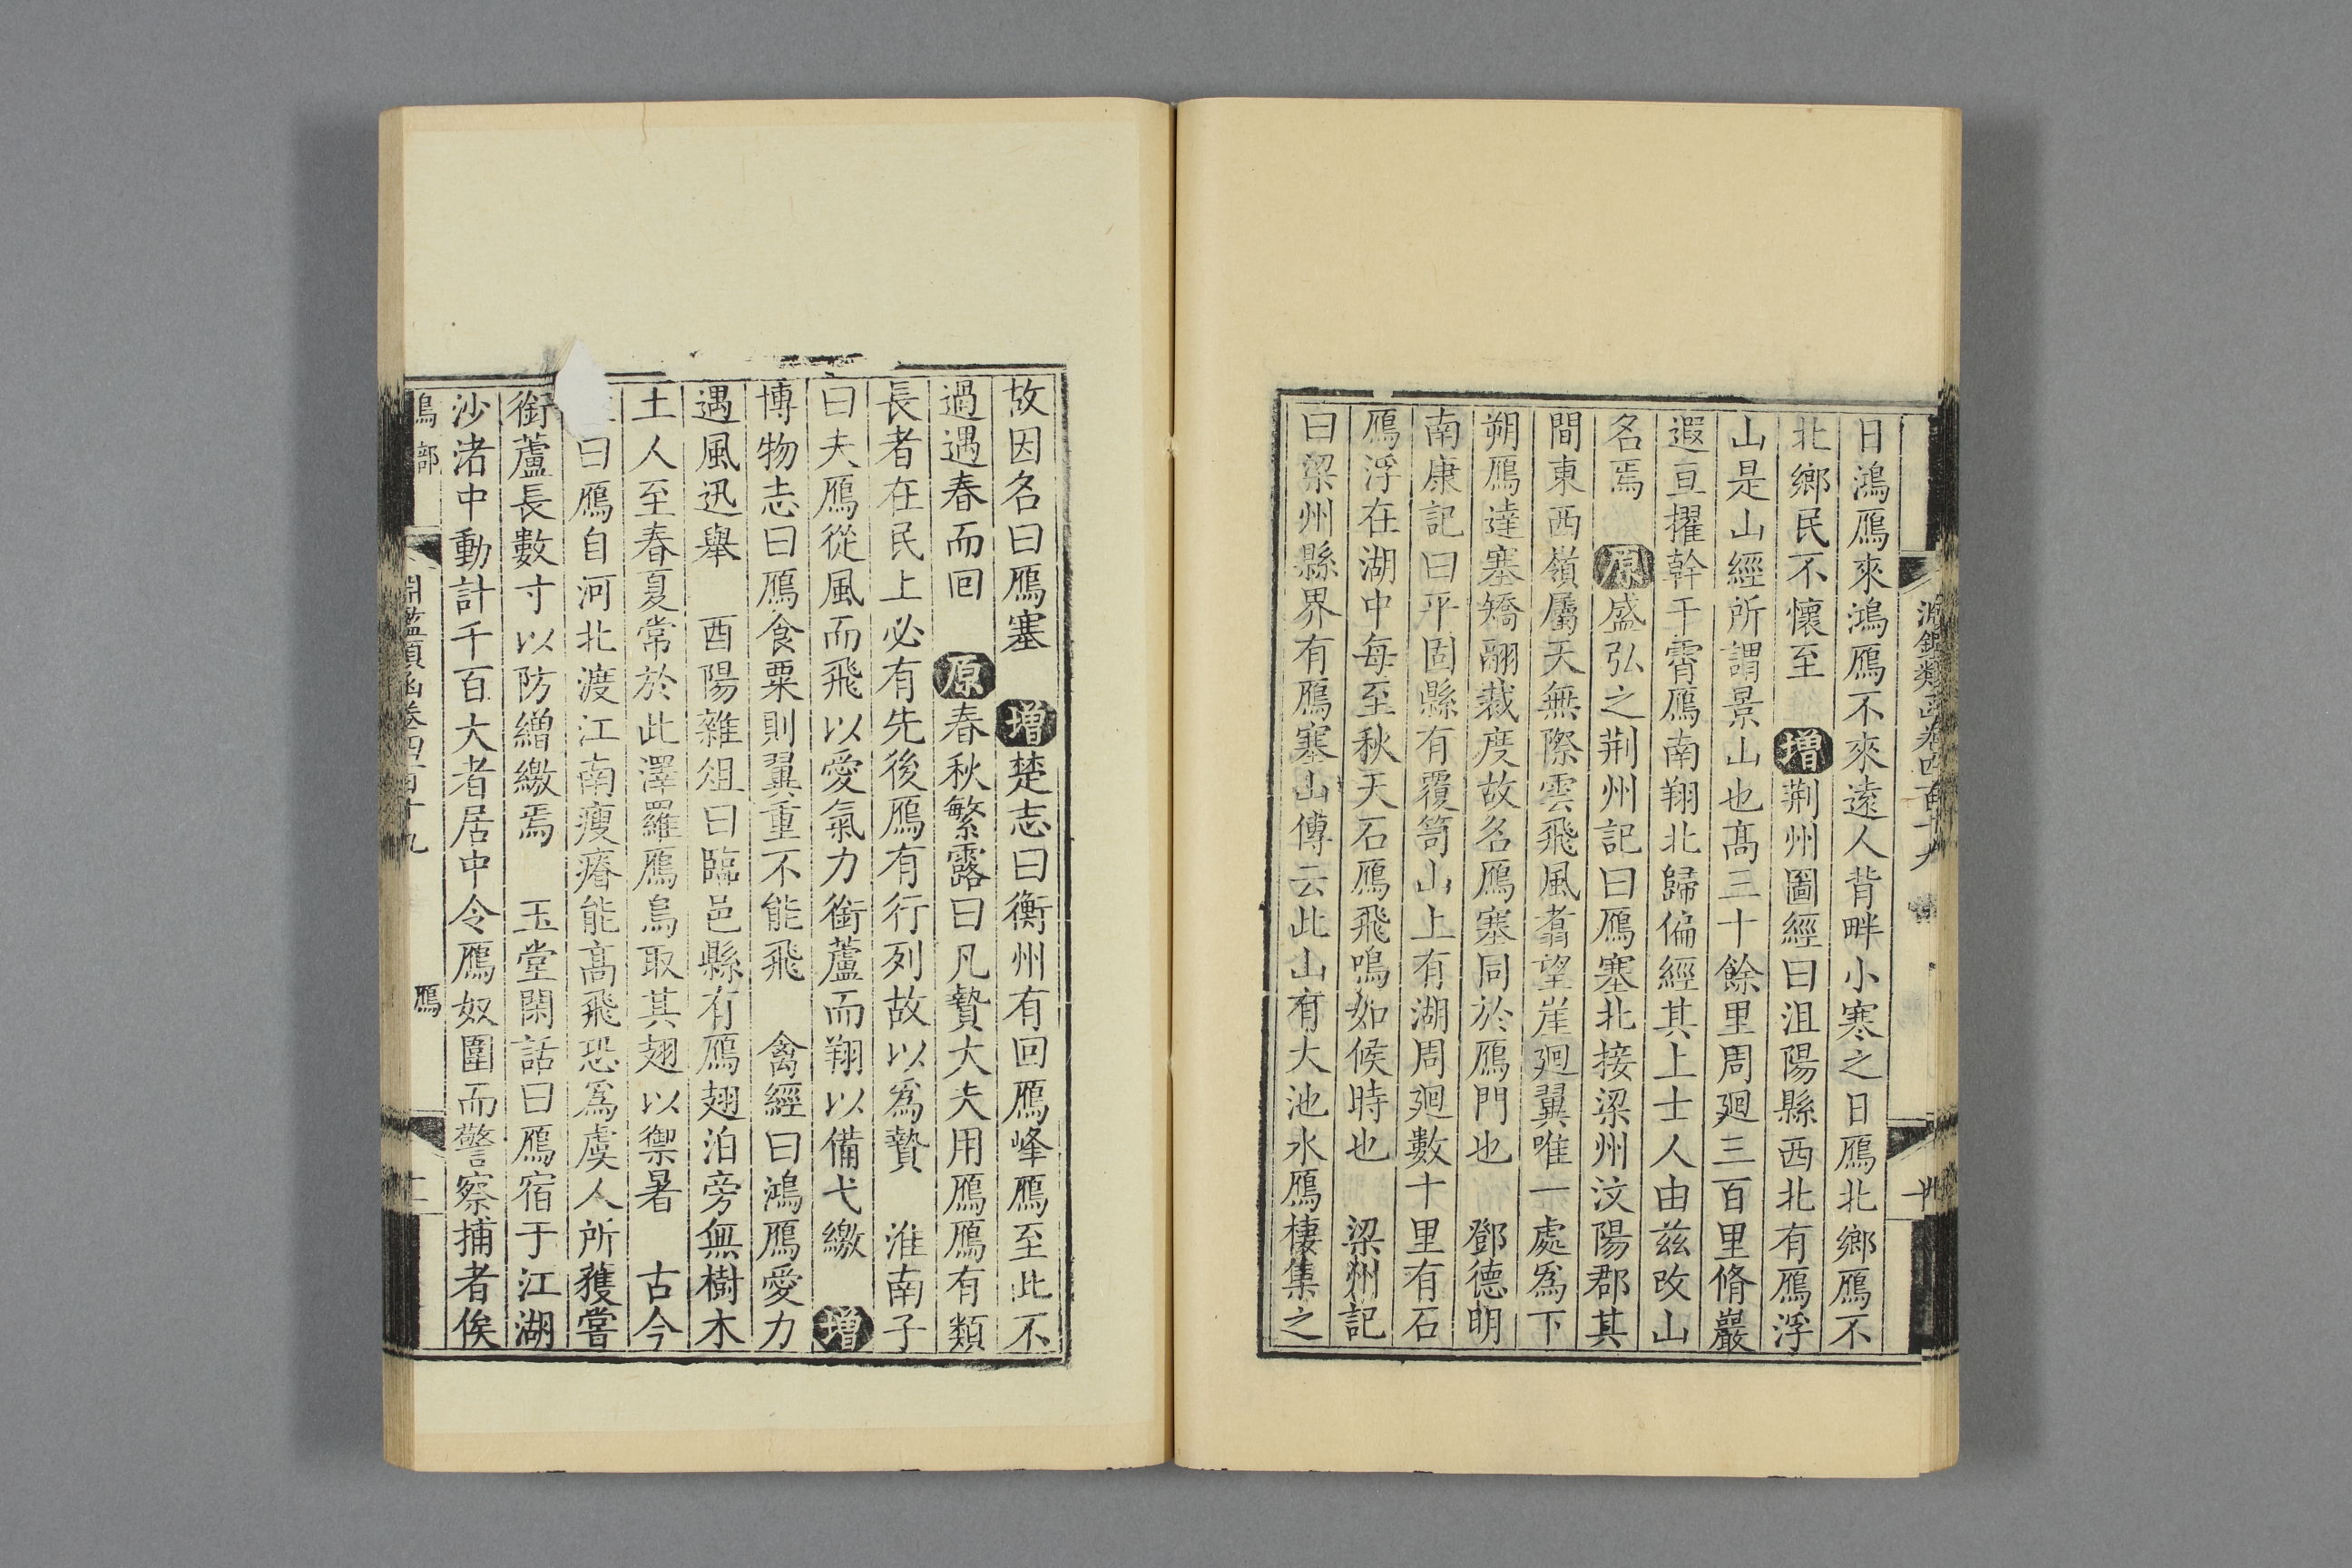 日鴻鴈來鴻鴈不來遠人背畔小寒之日鴈北鄉鴈不
北鄉民不懷至 增荆州圖經曰沮陽縣西北有鴈浮
山是山經所謂景山也髙三十餘里周廻三百里脩巖
遐亘擢幹干霄鴈南翔北歸偏經其上士人由兹改山
名焉 原盛弘之荆州記曰鴈塞北接梁州汶陽郡其
間東西嶺屬天無際雲飛風翥望崖廻翼唯一處爲下
朔鴈達塞矯翮裁度故名鴈塞同於鴈門也 鄧德明
南康記曰平固縣有覆笥山上有湖周廻數十里有石
鴈浮在湖中每至秋天石鴈飛鳴如候時也 梁州記
曰梁州縣界有鴈塞山傳云此山有大池水鴈棲集之
故因名曰鴈塞 增楚志曰衡州有回鴈峰鴈至此不
過遇春而回 原春秋繁露曰凡贄大夫用鴈鴈有類
長者在民上必有先後鴈有行列故以爲贄 淮南子
曰夫鴈從風而飛以愛氣力銜蘆而翔以備弋繳 增
博物志曰鴈食粟則翼重不能飛 禽經曰鴻鴈愛力
遇風迅舉 酉陽雜俎曰臨邑縣有鴈翅泊旁無樹木
土人至春夏常於此澤羅鴈鳥取其翅以禦暑 古今
曰鴈自河北渡江南瘦瘠能髙飛恐爲虞人所獲嘗
銜蘆長數寸以防繒繳焉 玉堂閑話曰鴈宿于江湖
沙渚中動計千百大者居中令鴈奴圍而警察捕者俟
鳥部 淵鑑類函卷四百十九 鴈